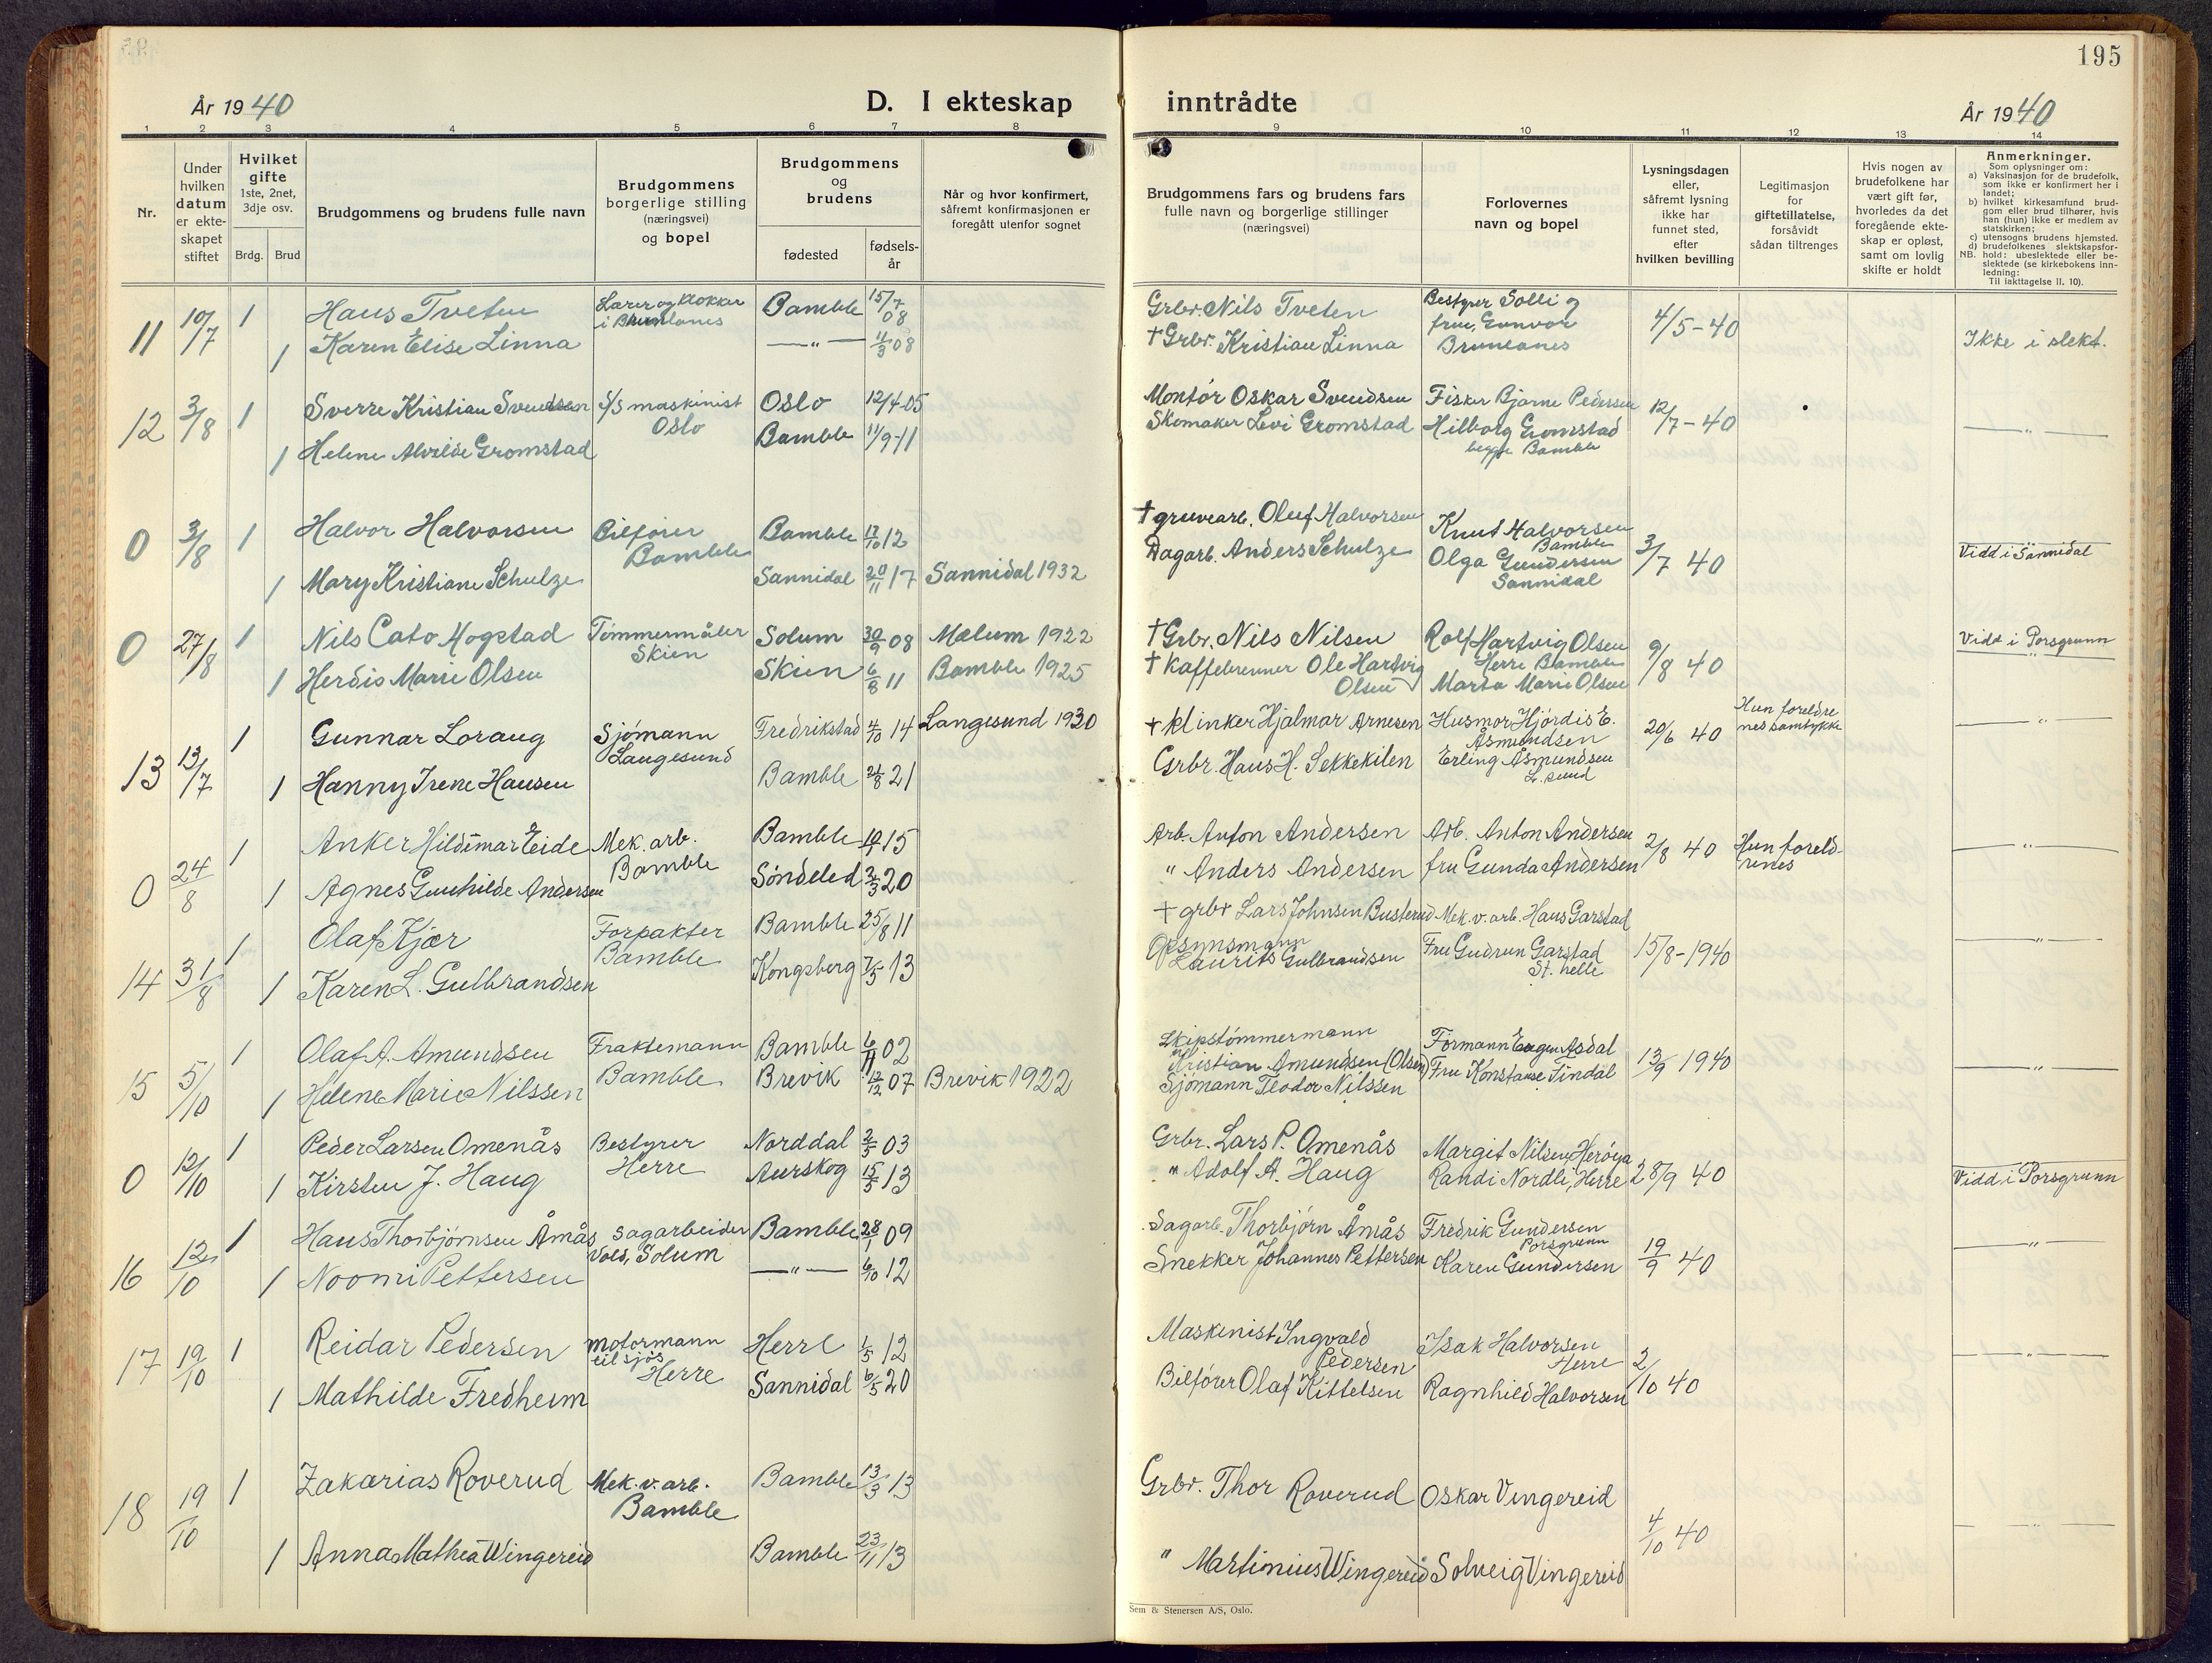 195
År 1940
D. I ekteskap inntrådte
År 1940
1 2 3 4 5 6 7 8 9 10 11 12 13 14
Nr.
Under hvilken datum er ekteskapet stiftet
Hvilket gifte
1ste, 2net, 3dje osv.
Brdg. Brud
Brudgommens og brudens fulle navn
Brudgommens borgerlige stilling (næringsvei) og bopel
Brudgommens og brudens
fødested
fødselsår
Når og hvor konfirmert, såfremt konfirmasjonen er foregått utenfor sognet
Brudgommens fars og brudens fars fulle navn og borgerlige stillinger (næringsvei)
Forlovernes navn og bopel
Lysningsdagen eller, såfremt lysning ikke har funnet sted, efter hvilken bevilling
Legitimasjon for giftetillatelse, forsåvidt sådan tiltrenges
Hvis nogen av brudefolkene har vært gift før, hvorledes da det foregående ekteskap er opløst, samt om lovlig skifte er holdt
Anmerkninger.
Som oplysninger om:
a) Vaksinasjon for de brudefolk, som ikke er konfirmert her i landet;
b) hvilket kirkesamfund brudgom eller brud tilhører, hvis han (hun) ikke er medlem av statskirken;
c) utensogns brudens hjemsted.
d) brudefolkenes slektskapsfor-
NB. hold: ubeslektede eller beslektede (se kirkebokens innledning:
Til iakttagelse II. 10).
11 10/7 1 Hans Tveten Lærer og klokker i Brunlanes Bamble 15/7 08 Grbr. Nils Tveten Bestyrer Solli og frue, Gunvor Brunlanes 4/5-40 Ikke i slekt.
1 Karen Elise Linna —"— 11/3 08 † Grbr. Kristian Linna
12 3/8 1 Sverre Kristian Svendsen S/S maskinist Oslo Oslo 12/4-05 Montør Oskar Svendsen Fisker Bjarne Pedersen 12/7-40 —"—
1 Helene Alvilde Gromstad Bamble 11/9-11 Skomaker Levi Gromstad Hilborg Gromstad begge Bamble
0 3/8 1 Halvor Halvorsen Bilfører Bamble Bamble 17/10 12 † gruvearb. Oluf Halvorsen Knut Halvorsen Bamble 3/7 40 Vidd i Sannidal
1 Mary Kristiane Schulze Sannidal 20/11 17 Sannidal 1932 Dagarb. Anders Schulze Olga Gundersen Sannidal
0 27/8 1 Nils Cato Mogstad Tømmermåler Skien Solum 30/9 08 Mælum 1922 † Grbr. Nils Nilsen Rolf Hartvig Olsen Herre Bamble 9/8 40 Vidd i Porsgrunn
1 Herdis Marie Olsen Skien 6/8 11 Bamble 1925 † Kaffebrenner Ole Hartvig Olsen Marta Marie Olsen —"—
13 13/7 1 Gunnar Loraug Sjømann Langesund Fredrikstad 4/10 14 Langesund 1930 † klinker Hjalmar Arnesen Husmor Hjördis E. Åsmundsen 20/6 40 Hun foreldrenes samtykke —"—
1 Hanny Irene Hansen Bamble 21 Grbr. Hans H. Sekkekilen Erling Åsmundsen L.sund
0 24/8 1 Anker Hildimar Eide Mek. arb. Bamble Bamble 15 Arb. Anton Andersen Arb. Anton Andersen 2/8 40 Hun foreldrenes —"—
1 Agnes Gunhilde Andersen Søndeled 20 " Anders Andersen fru Gunda Andersen
14 31/8 1 Olaf Kjær Forpakter Bamble Bamble 25/8 11 † grbr Lars Johnsen Busterud Mek. v. arb. Hans Garstad 15/8-1940 —"—
1 Karen L. Gulbrandsen Kongsberg 7/5 13 Opsynsmann Laurits Gulbrandsen Fru Gudrun Garstad St. helle
15 5/10 1 Olaf A. Amundsen Fraktemann Bamble Bamble 6/11 02 Skipstømmermann Kristian Amundsen (Olsen) Formann Eugen Asdal 13/9 1940 —"—
1 Helene Marie Nilssen Brevik 12/12 07 Brevik 1922 Sjømann Teodor Nilssen Fru Konstanse Tindal
0 12/10 1 Peder Larsen Omenås Bestyrer Herre Norddal 03 Grbr. Lars P. Omenås Margit Nilsen, Herøya 28/9 40 Vidd i Porsgrunn
1 Kirsten J. Haug Aurskog 13 " Adolf A. Haug Randi Nordli, Herre
16 12/10 1 Hans Thorbjørnsen Åmås Sagarbeider Vold, Solum Bamble 28/1 09 Sagarb. Thorbjörn Åmås Fredrik Gundersen Porsgrunn 19/9 40 —"—
1 Noomi Pettersen —"— 6/10 12 Snekker Johannes Pettersen Karen Gundersen
17 19/10 1 Reidar Pedersen Motormann til sjøs Herre Herre 1/5 12 Maskinist Ingvald Pedersen Isak Halvorsen Herre 2/10 40 —"—
1 Mathilde Fredheim Sannidal 6/5 20 Bilfører Olaf Kittelsen Ragnhild Halvorsen
18 19/10 1 Zakarias Roverud Mek. v. arb. Bamble Bamble 13/3 13 Grbr. Thor Roverud Oskar Vingereid 4/10 40 —"—
1 Anna Mathea Wingereid Bamble 23/11 13 " Martinius Wingereid Solveig Vingereid
Sem & Stenersen A/S, Oslo.